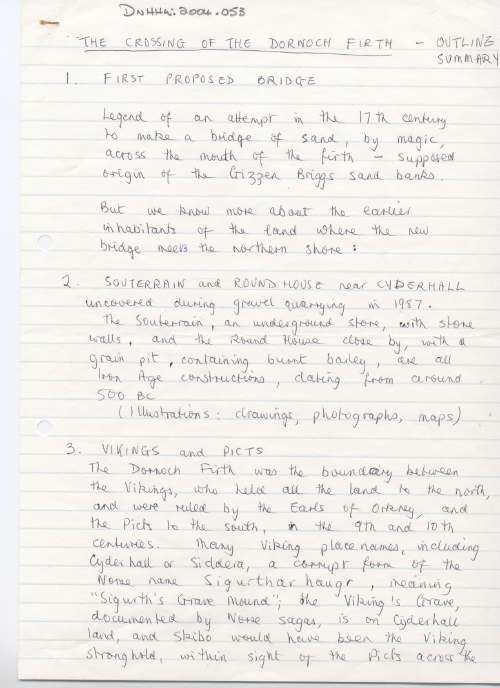 DNHHL: 2004.053
THE CROSSING OF THE DORNOCH FIRTH - OUTLINE
SUMMARY
1. FIRST PROPOSED BRIDGE
Legend of an attempt in the 17th century
to make a bridge of sand, by magic,
across the mouth of the firth - supposed
origin of the Gizzen Briggs sand banks.
But we know more about the earlier
inhabitants of the land where the new
bridge meets the northern shore:
2. SOUTERRAIN and ROUND HOUSE near CYDERHALL
uncovered during gravel quarrying in 1987.
The Souterrain, an underground store, with stone
walls, and the Round House close by, with a
grain pit, containing burnt barley, are all
Iron Age constructions, dating from around
500 BC
(Illustrations: drawings, photographs, maps)
3. VIKINGS and PICTS
The Dornoch Firth was the boundary between
the Vikings, who held all the land to the north,
and were ruled by the Earls of Orkney, and
the Picts to the south, in the 9th and 10th
centuries. Many Viking place names, including
Cyderhall or Siddera, a corrupt form of the
Norse name Sigurthar haugr, meaning
"Sigurth's Grave Mound"; the Viking's Grave,
documented by Norse sagas, is on Cyderhall
land, and Skibo would have been the Viking
stronghold, within sight of the Picts across the